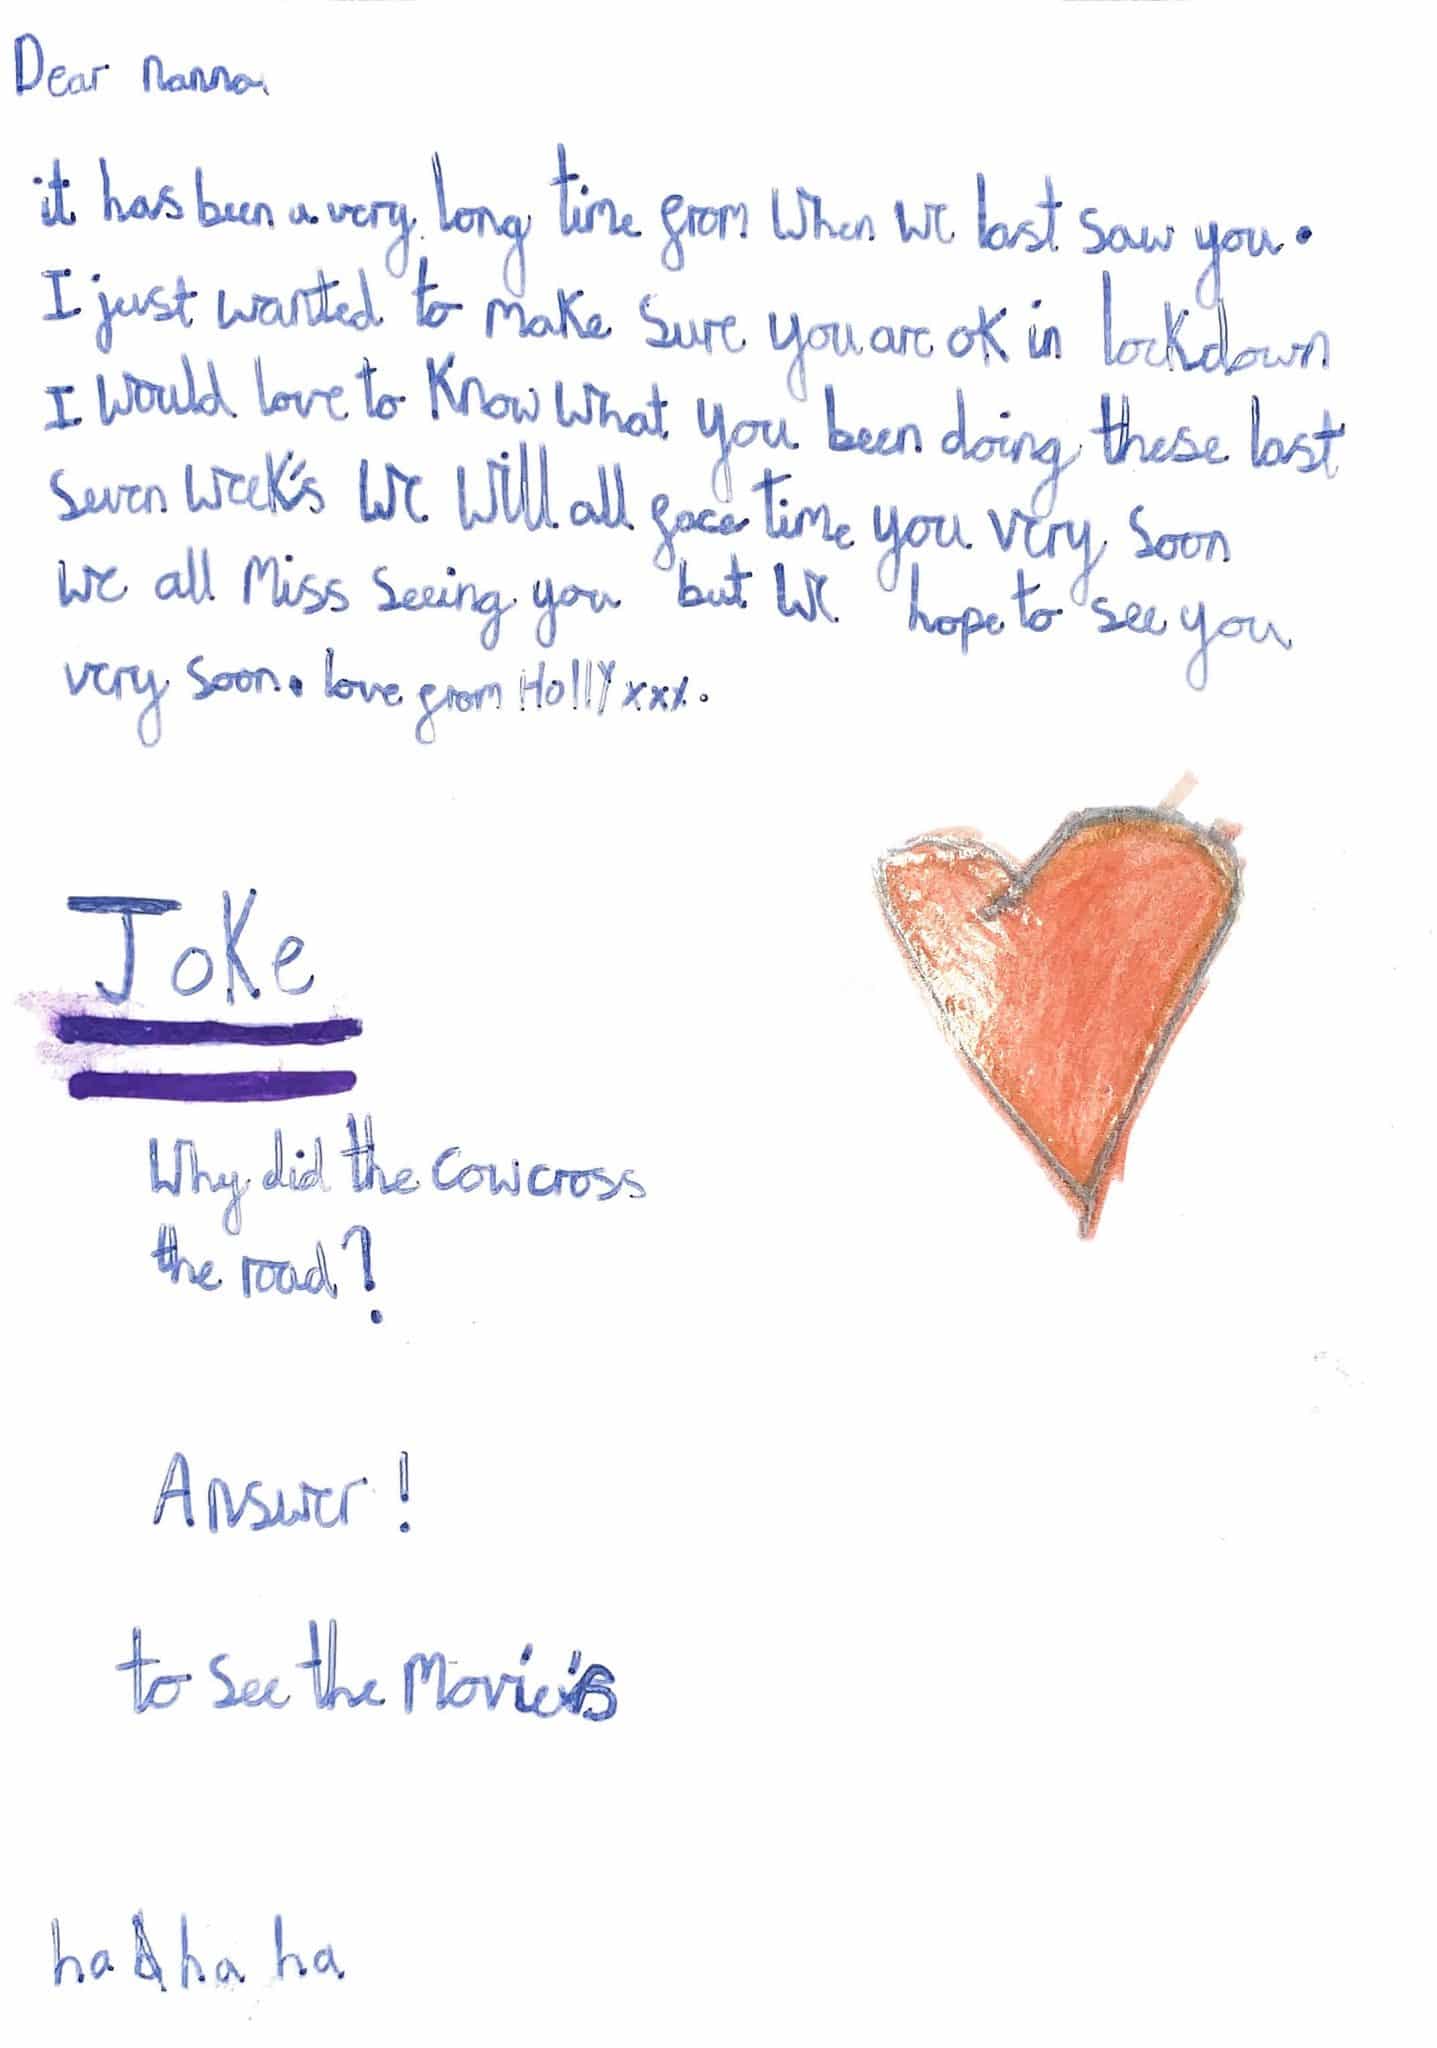 Dear nanna
it has been a very long time from when we last saw you.
I just wanted to make sure you are oK in locKdown
I would love to Know what you been doing these last
seven weeK's we will all face time you very soon
we all miss seeing you but we hope to see you
very soon. love from HollY xxx.
JoKe
Why did the cow cross
the road?
Answer!
to see the Movie's
ha ha ha